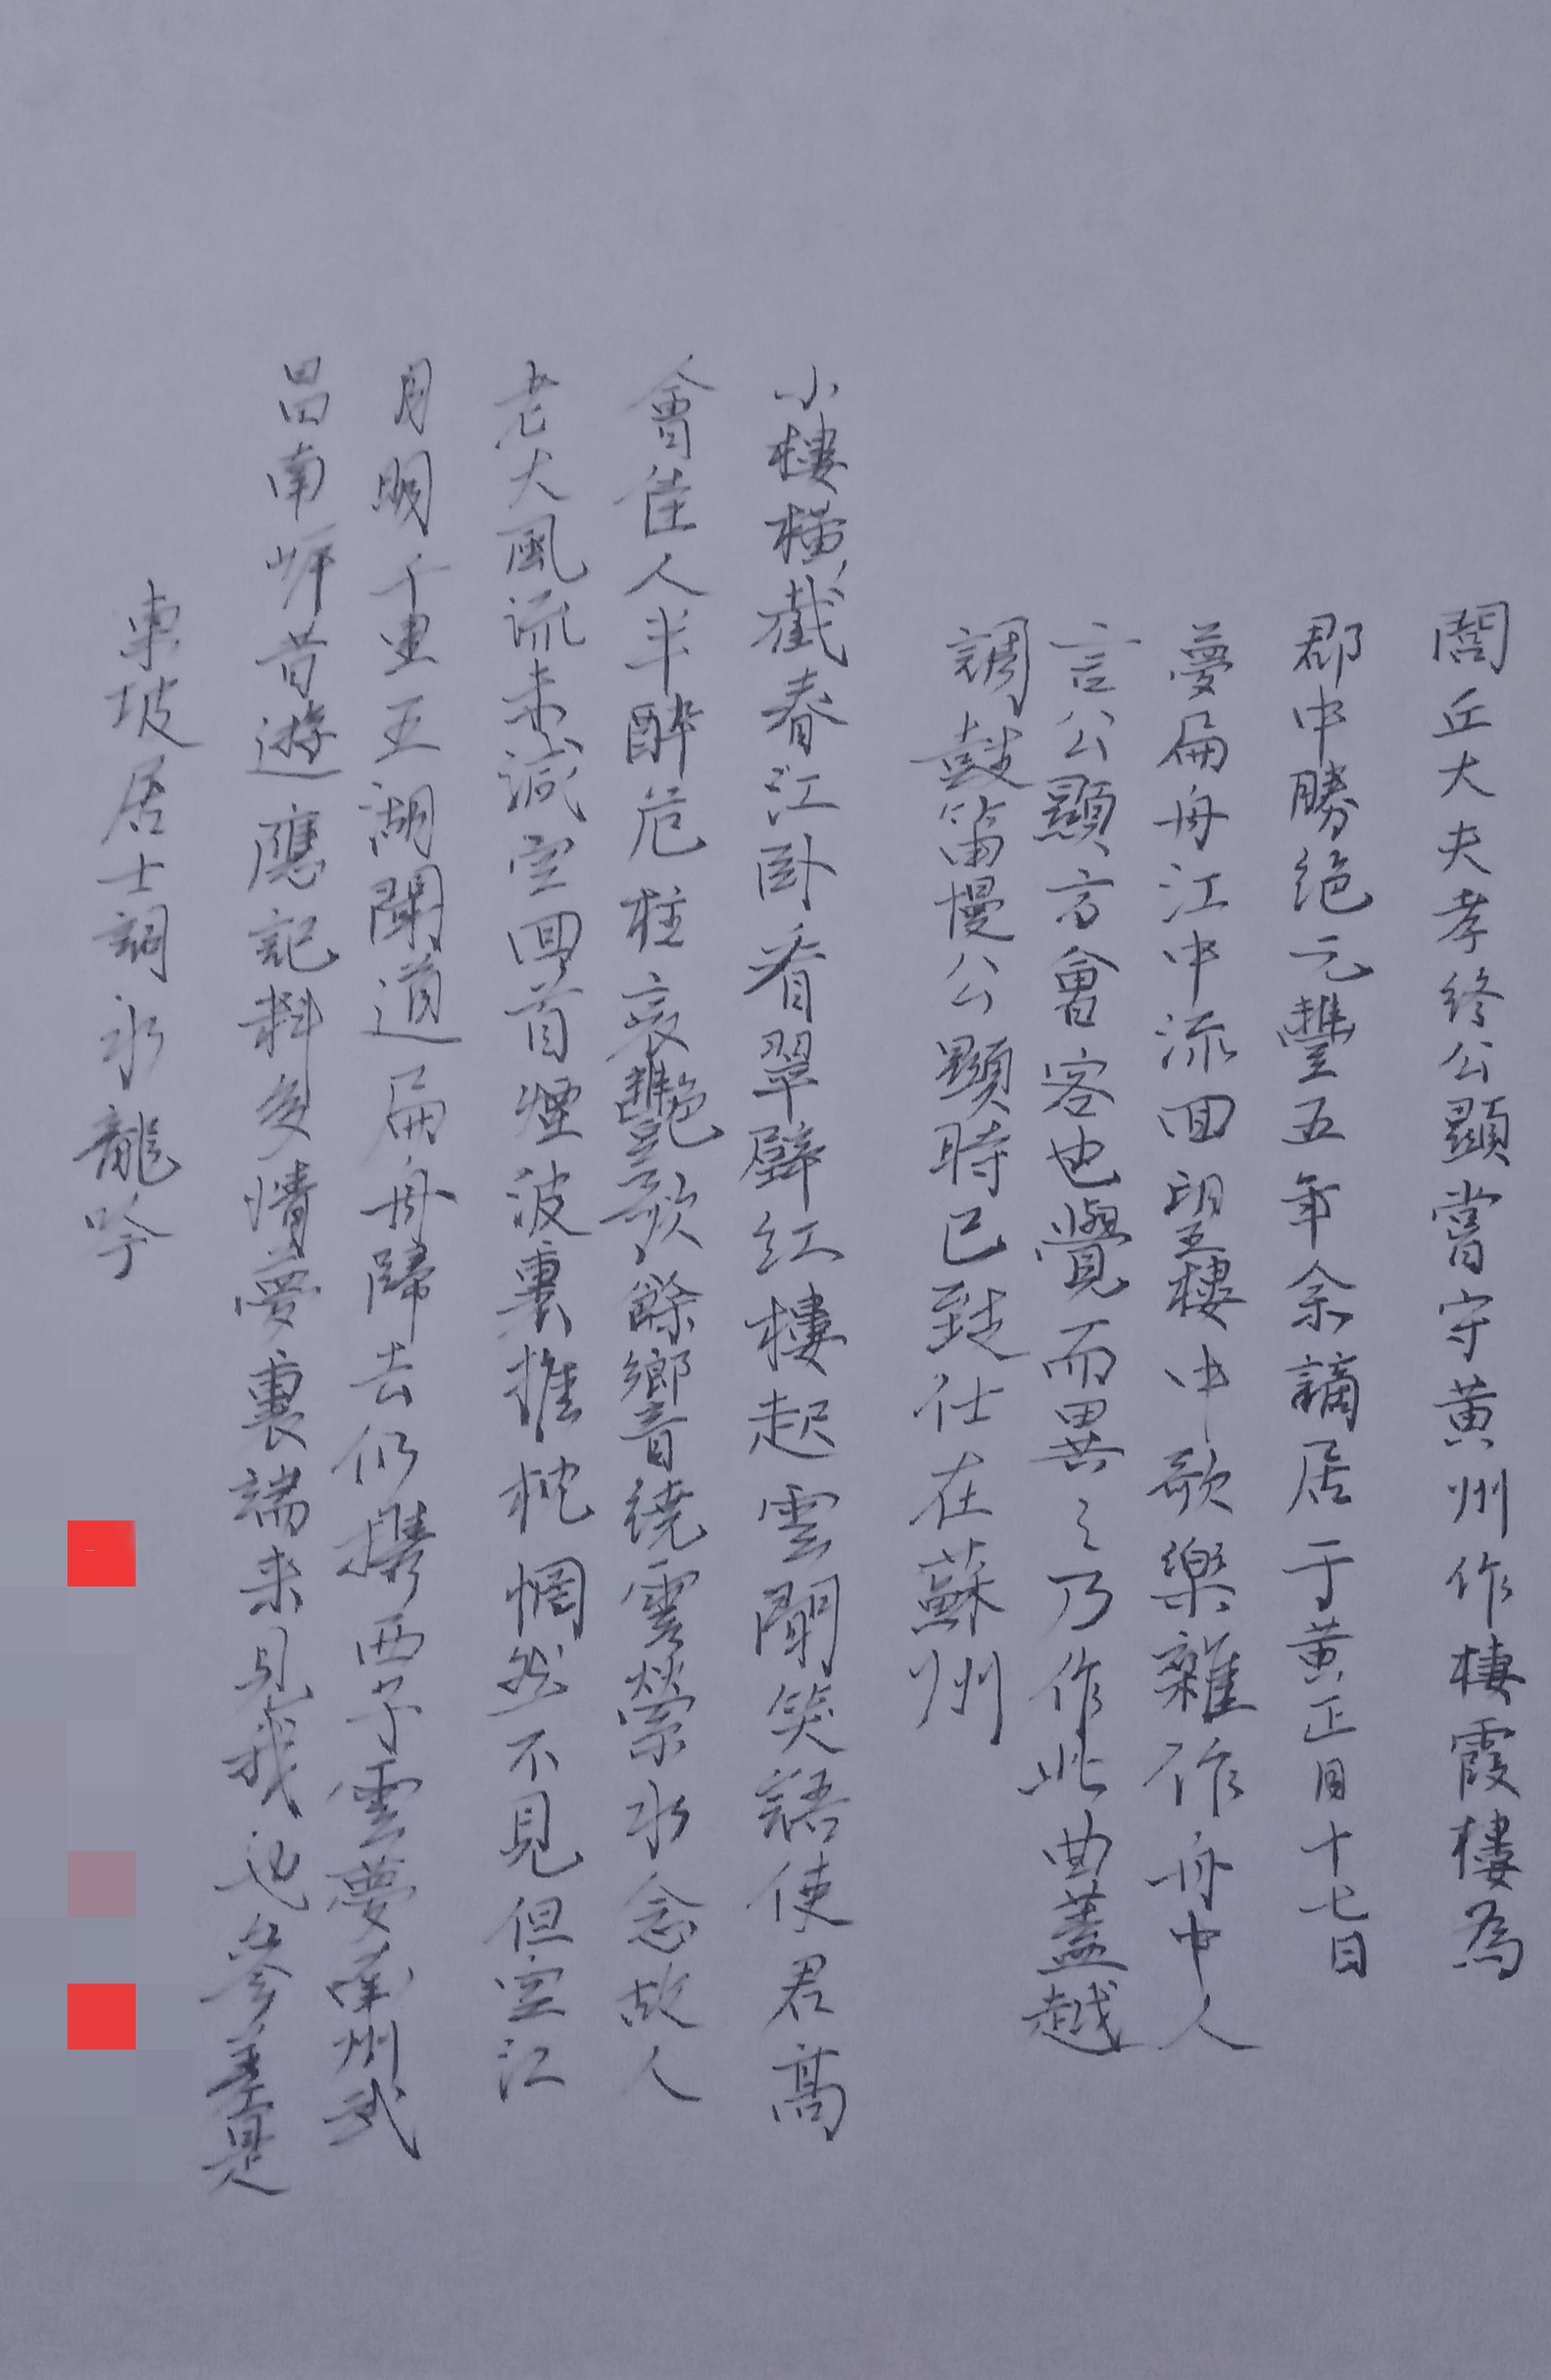 閭丘大夫孝終公顯嘗守黄州作棲霞樓為
郡中勝绝元豐五年余謫居于黄正月十七日
夢扁舟江中流回望樓中歌樂雜作舟中人
言公顯方會客也覺而異之乃作此曲蓋越
調鼓笛慢公顯時已致仕在蘇州
小樓橫截春江卧看翠壁紅樓起雲閒笑語使君高
會佳人半醉危柱哀艷歌餘響繞雲縈水念故人
老大風流未減空回首煙波裏推枕惘然不見但空江
月明千里五湖聞道扁舟歸去仍攜西子雲夢南州武
昌南岸昔遊應記料多情夢裏端来見我也參差是
東坡居士詞水龍吟